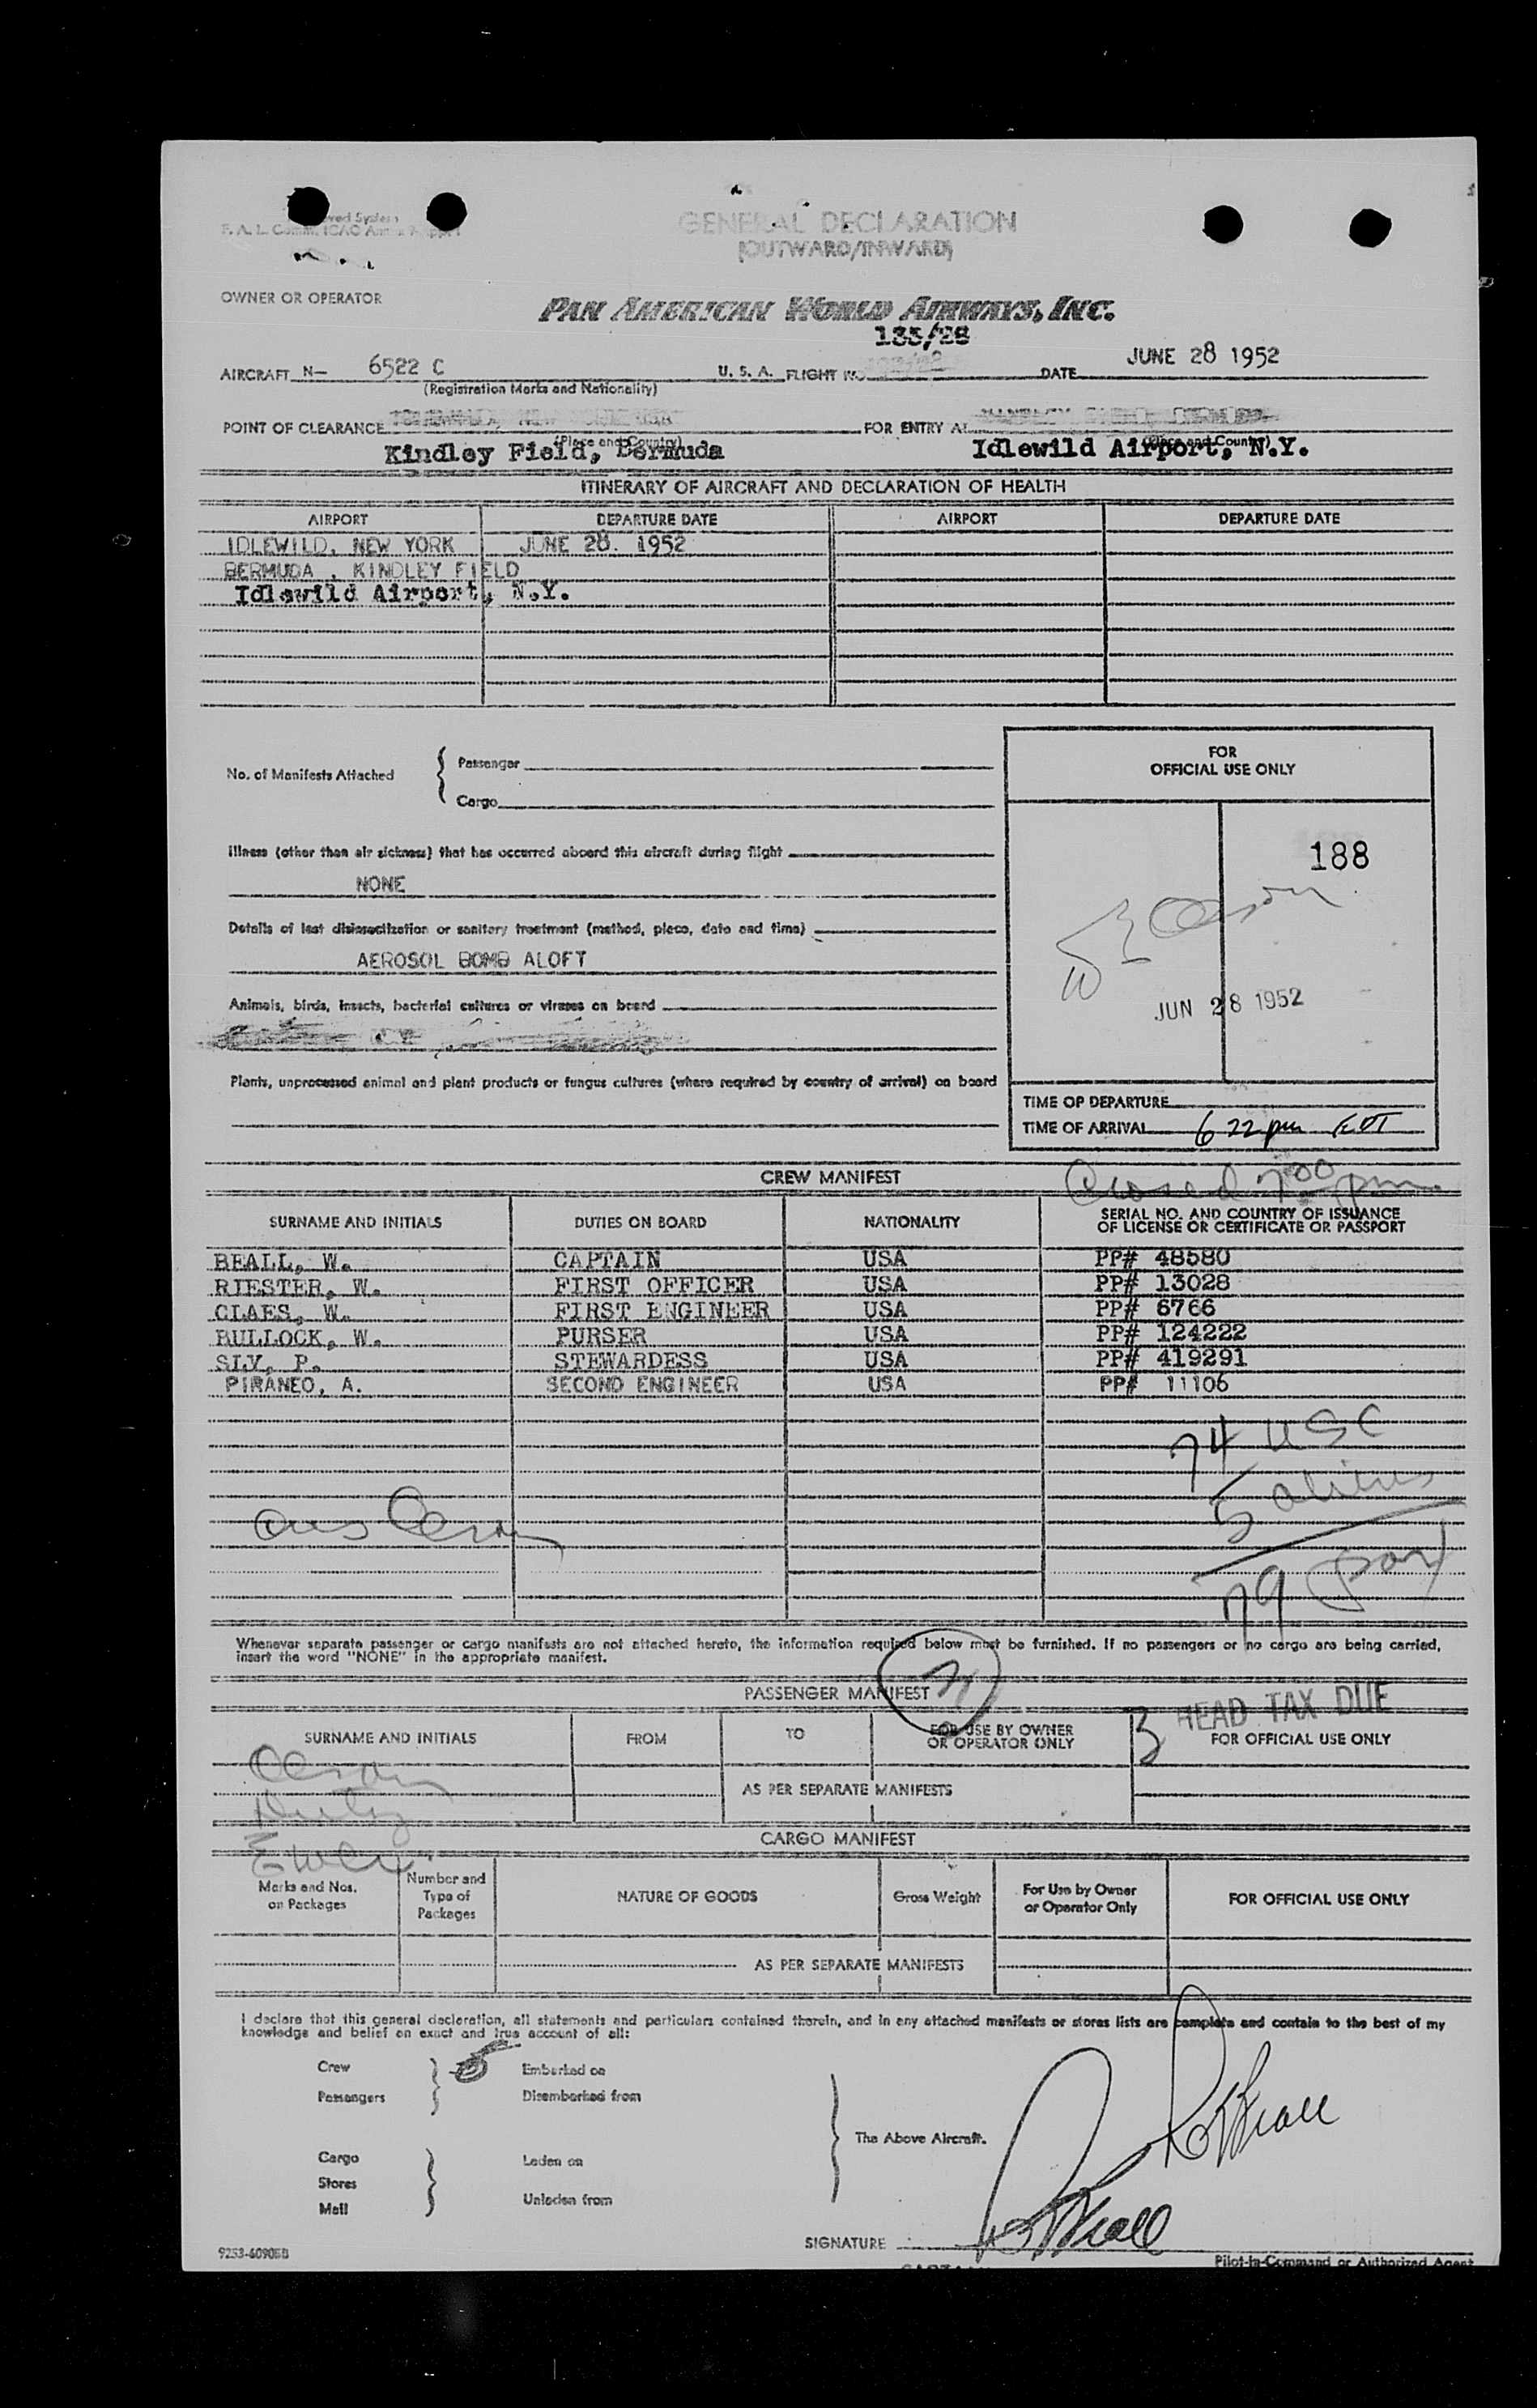 F. A. L. Comm. ICAO
GENERAL DECLARATION
(OUTWARD/INWARD)
OWNER OR OPERATOR
PAN AMERICAN WORLD AIRWAYS, INC.
135/28
AIRCRAFT N— 6522 C U. S. A. FLIGHT NO. DATE JUNE 28 1952
(Registration Marks and Nationality)
POINT OF CLEARANCE FOR ENTRY AT
(Place and Country) (Place and Country)
Kindley Field, Bermuda Idlewild Airport, N.Y.
ITINERARY OF AIRCRAFT AND DECLARATION OF HEALTH
AIRPORT DEPARTURE DATE AIRPORT DEPARTURE DATE
IDLEWILD, NEW YORK JUNE 28. 1952
BERMUDA , KINDLEY FIELD
Idlewild Airport, N.Y.
No. of Manifests Attached { Passenger
Cargo
FOR
OFFICIAL USE ONLY
188
JUN 28 1952
Illness (other than air sickness) that has occurred aboard this aircraft during flight
NONE
Details of last disinsectization or sanitary treatment (method, place, date and time)
AEROSOL BOMB ALOFT
Animals, birds, insects, bacterial cultures or viruses on board
Plants, unprocessed animal and plant products or fungus cultures (where required by country of arrival) on board
TIME OF DEPARTURE
TIME OF ARRIVAL 6 22 pm EDT
Closed 7:00 pm
CREW MANIFEST
SURNAME AND INITIALS DUTIES ON BOARD NATIONALITY SERIAL NO. AND COUNTRY OF ISSUANCE
OF LICENSE OR CERTIFICATE OR PASSPORT
BEALL, W. CAPTAIN USA PP# 48580
RIESTER, W. FIRST OFFICER USA PP# 13028
CLAES, W. FIRST ENGINEER USA PP# 6766
BULLOCK, W. PURSER USA PP# 124222
SLY, P. STEWARDESS USA PP# 419291
PIRANEO, A. SECOND ENGINEER USA PP# 11106
74 USC
5 aliens
79 pax
Whenever separate passenger or cargo manifests are not attached hereto, the information required below must be furnished. If no passengers or no cargo are being carried,
insert the word "NONE" in the appropriate manifest.
PASSENGER MANIFEST
3 HEAD TAX DUE
SURNAME AND INITIALS FROM TO FOR USE BY OWNER
OR OPERATOR ONLY FOR OFFICIAL USE ONLY
AS PER SEPARATE MANIFESTS
CARGO MANIFEST
Marks and Nos.
on Packages Number and
Type of
Packages NATURE OF GOODS Gross Weight For Use by Owner
or Operator Only FOR OFFICIAL USE ONLY
AS PER SEPARATE MANIFESTS
I declare that this general declaration, all statements and particulars contained therein, and in any attached manifests or stores lists are complete and contain to the best of my
knowledge and belief an exact and true account of all:
Crew Embarked on
Passengers Disembarked from
The Above Aircraft.
Cargo Laden on
Stores
Mail Unladen from
SIGNATURE
Pilot-in-Command or Authorized Agent